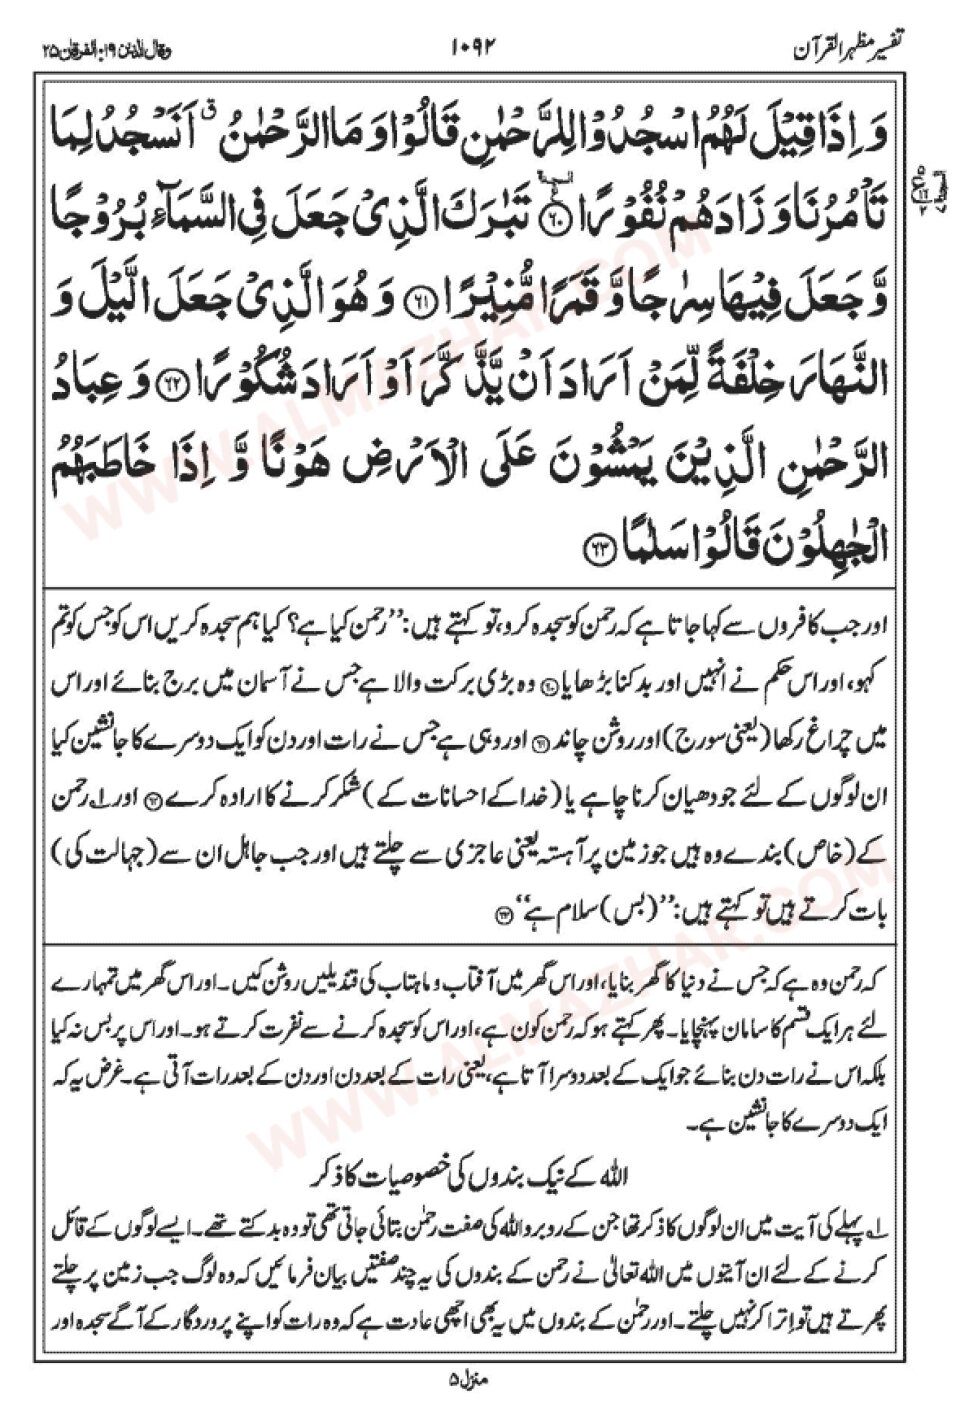 تفسیر مظہر القرآن
۱۰۹۲
وقال الذین ۱۹: الفرقان ۲۵
وَاِذَا قِیْلَ لَهُمُ اسْجُدُوْا لِلرَّحْمٰنِ قَالُوْا وَمَا الرَّحْمٰنُ ۗ اَنَسْجُدُ لِمَا
تَاْمُرُنَا وَزَادَهُمْ نُفُوْرًا ﴿۶۰﴾ تَبٰرَكَ الَّذِیْ جَعَلَ فِی السَّمَآءِ بُرُوْجًا
وَّجَعَلَ فِیْهَا سِرٰجًا وَّقَمَرًا مُّنِیْرًا ﴿۶۱﴾ وَهُوَ الَّذِیْ جَعَلَ الَّیْلَ وَ
النَّهَارَ خِلْفَةً لِّمَنْ اَرَادَ اَنْ یَّذَّكَّرَ اَوْ اَرَادَ شُكُوْرًا ﴿۶۲﴾ وَعِبَادُ
الرَّحْمٰنِ الَّذِیْنَ یَمْشُوْنَ عَلَی الْاَرْضِ هَوْنًا وَّاِذَا خَاطَبَهُمُ
الْجٰهِلُوْنَ قَالُوْا سَلٰمًا ﴿۶۳﴾
اور جب کافروں سے کہا جاتا ہے کہ رحمن کو سجدہ کرو، تو کہتے ہیں: ’’رحمن کیا ہے؟ کیا ہم سجدہ کریں اس کو جس کو تم
کہو، اور اس حکم نے انہیں اور بدکنا بڑھایا ﴿۶۰﴾ وہ بڑی برکت والا ہے جس نے آسمان میں برج بنائے اور اس
میں چراغ رکھا (یعنی سورج) اور روشن چاند ﴿۶۱﴾ اور وہی ہے جس نے رات اور دن کو ایک دوسرے کا جانشین کیا
ان لوگوں کے لئے جو دھیان کرنا چاہے یا (خدا کے احسانات کے) شکر کرنے کا ارادہ کرے ﴿۶۲﴾ اور ۱؎ رحمن
کے (خاص) بندے وہ ہیں جو زمین پر آہستہ یعنی عاجزی سے چلتے ہیں اور جب جاہل ان سے (جہالت کی)
بات کرتے ہیں تو کہتے ہیں: ’’(بس) سلام ہے‘‘ ﴿۶۳﴾
کہ رحمن وہ ہے کہ جس نے دنیا کا گھر بنایا، اور اس گھر میں آفتاب و ماہتاب کی قندیلیں روشن کیں۔ اور اس گھر میں تمہارے
لئے ہر ایک قسم کا سامان پہنچایا۔ پھر کہتے ہو کہ رحمن کون ہے، اور اس کو سجدہ کرنے سے نفرت کرتے ہو۔ اور اس پر بس نہ کیا
بلکہ اس نے رات دن بنائے جو ایک کے بعد دوسرا آتا ہے، یعنی رات کے بعد دن اور دن کے بعد رات آتی ہے۔ غرض یہ کہ
ایک دوسرے کا جانشین ہے۔
اللہ کے نیک بندوں کی خصوصیات کا ذکر
۱؎ پہلے کی آیت میں ان لوگوں کا ذکر تھا جن کے روبرو اللہ کی صفت رحمٰن بتائی جاتی تھی تو وہ بدکتے تھے۔ ایسے لوگوں کے قائل
کرنے کے لئے ان آیتوں میں اللہ تعالیٰ نے رحمن کے بندوں کی یہ چند صفتیں بیان فرمائیں کہ وہ لوگ جب زمین پر چلتے
پھرتے ہیں تو اترا کر نہیں چلتے۔ اور رحمٰن کے بندوں میں یہ بھی اچھی عادت ہے کہ وہ رات کو اپنے پروردگار کے آگے سجدہ اور
منزل ۵
WWW.ALMAZHAR.COM
WWW.ALMAZHAR.COM